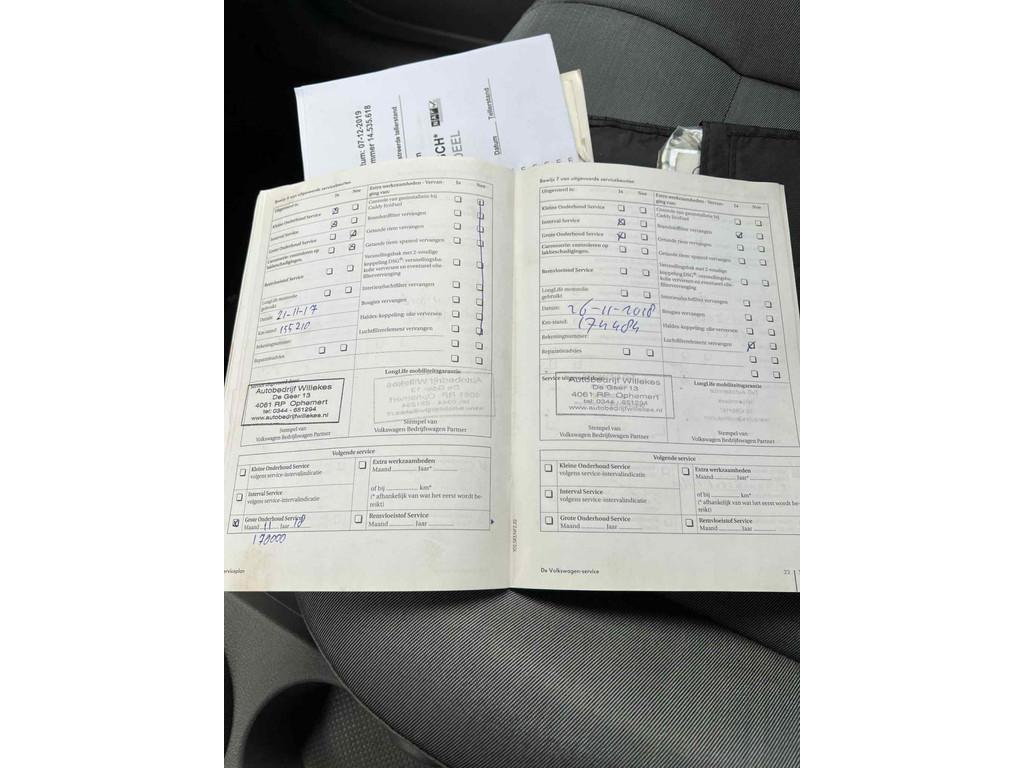 tum: 07-12-2019
mmer 14.535.618
streerde tellerstand
SCH*
DEEL
Datum
Tellerstand
Bewijs 6 van uitgevoerde servicebeurten
Uitgevoerd is:
Ja
Nee
Extra werkzaamheden - Vervanging van:
Ja
Nee
Kleine Onderhoud Service
Interval Service
Grote Onderhoud Service
Carrosserie: controleren op lakbeschadigingen.
Remvloeistof Service
LongLife motorolie gebruikt
Datum: 21-11-17
Km-stand: 155210
Rekeningnummer:
Reparatieadvies
Controle van gasinstallatie bij Caddy EcoFuel
Brandstoffilter vervangen
Getande riem vervangen
Getande riem: spanrol vervangen
Versnellingsbak met 2-voudige koppeling DSG®: versnellingsbakolie verversen en eventueel oliefiltervervanging
Interieurluchtfilter vervangen
Bougies vervangen
Haldex-koppeling: olie verversen
Luchtfilterelement vervangen
Service uitgevoerd door:
LongLife mobiliteitsgarantie
Autobedrijf Willekes
De Geer 13
4061 RP Ophemert
tel: 0344 - 651294
www.autobedrijfwillekes.nl
Stempel van
Volkswagen Bedrijfswagen Partner
Stempel van
Volkswagen Bedrijfswagen Partner
Volgende service
Kleine Onderhoud Service
volgens service-intervalindicatie
Interval Service
volgens service-intervalindicatie
Grote Onderhoud Service
Maand 11 Jaar 18
170000
Extra werkzaamheden
Maand Jaar*
of bij km*
(* afhankelijk van wat het eerst wordt bereikt)
Remvloeistof Service
Maand Jaar
erviceplan
Bewijs 7 van uitgevoerde servicebeurten
Uitgevoerd is:
Ja
Nee
Extra werkzaamheden - Vervanging van:
Ja
Nee
Kleine Onderhoud Service
Interval Service
Grote Onderhoud Service
Carrosserie: controleren op lakbeschadigingen.
Remvloeistof Service
LongLife motorolie gebruikt
Datum: 26-11-2018
Km-stand: 174484
Rekeningnummer:
Reparatieadvies
Controle van gasinstallatie bij Caddy EcoFuel
Brandstoffilter vervangen
Getande riem vervangen
Getande riem: spanrol vervangen
Versnellingsbak met 2-voudige koppeling DSG®: versnellingsbakolie verversen en eventueel oliefiltervervanging
Interieurluchtfilter vervangen
Bougies vervangen
Haldex-koppeling: olie verversen
Luchtfilterelement vervangen
Service uitgevoerd door:
LongLife mobiliteitsgarantie
Autobedrijf Willekes
De Geer 13
4061 RP Ophemert
tel: 0344 - 651294
www.autobedrijfwillekes.nl
Stempel van
Volkswagen Bedrijfswagen Partner
Stempel van
Volkswagen Bedrijfswagen Partner
Volgende service
Kleine Onderhoud Service
volgens service-intervalindicatie
Interval Service
volgens service-intervalindicatie
Grote Onderhoud Service
Maand Jaar
Extra werkzaamheden
Maand Jaar*
of bij km*
(* afhankelijk van wat het eerst wordt bereikt)
Remvloeistof Service
Maand Jaar
De Volkswagen-service
23